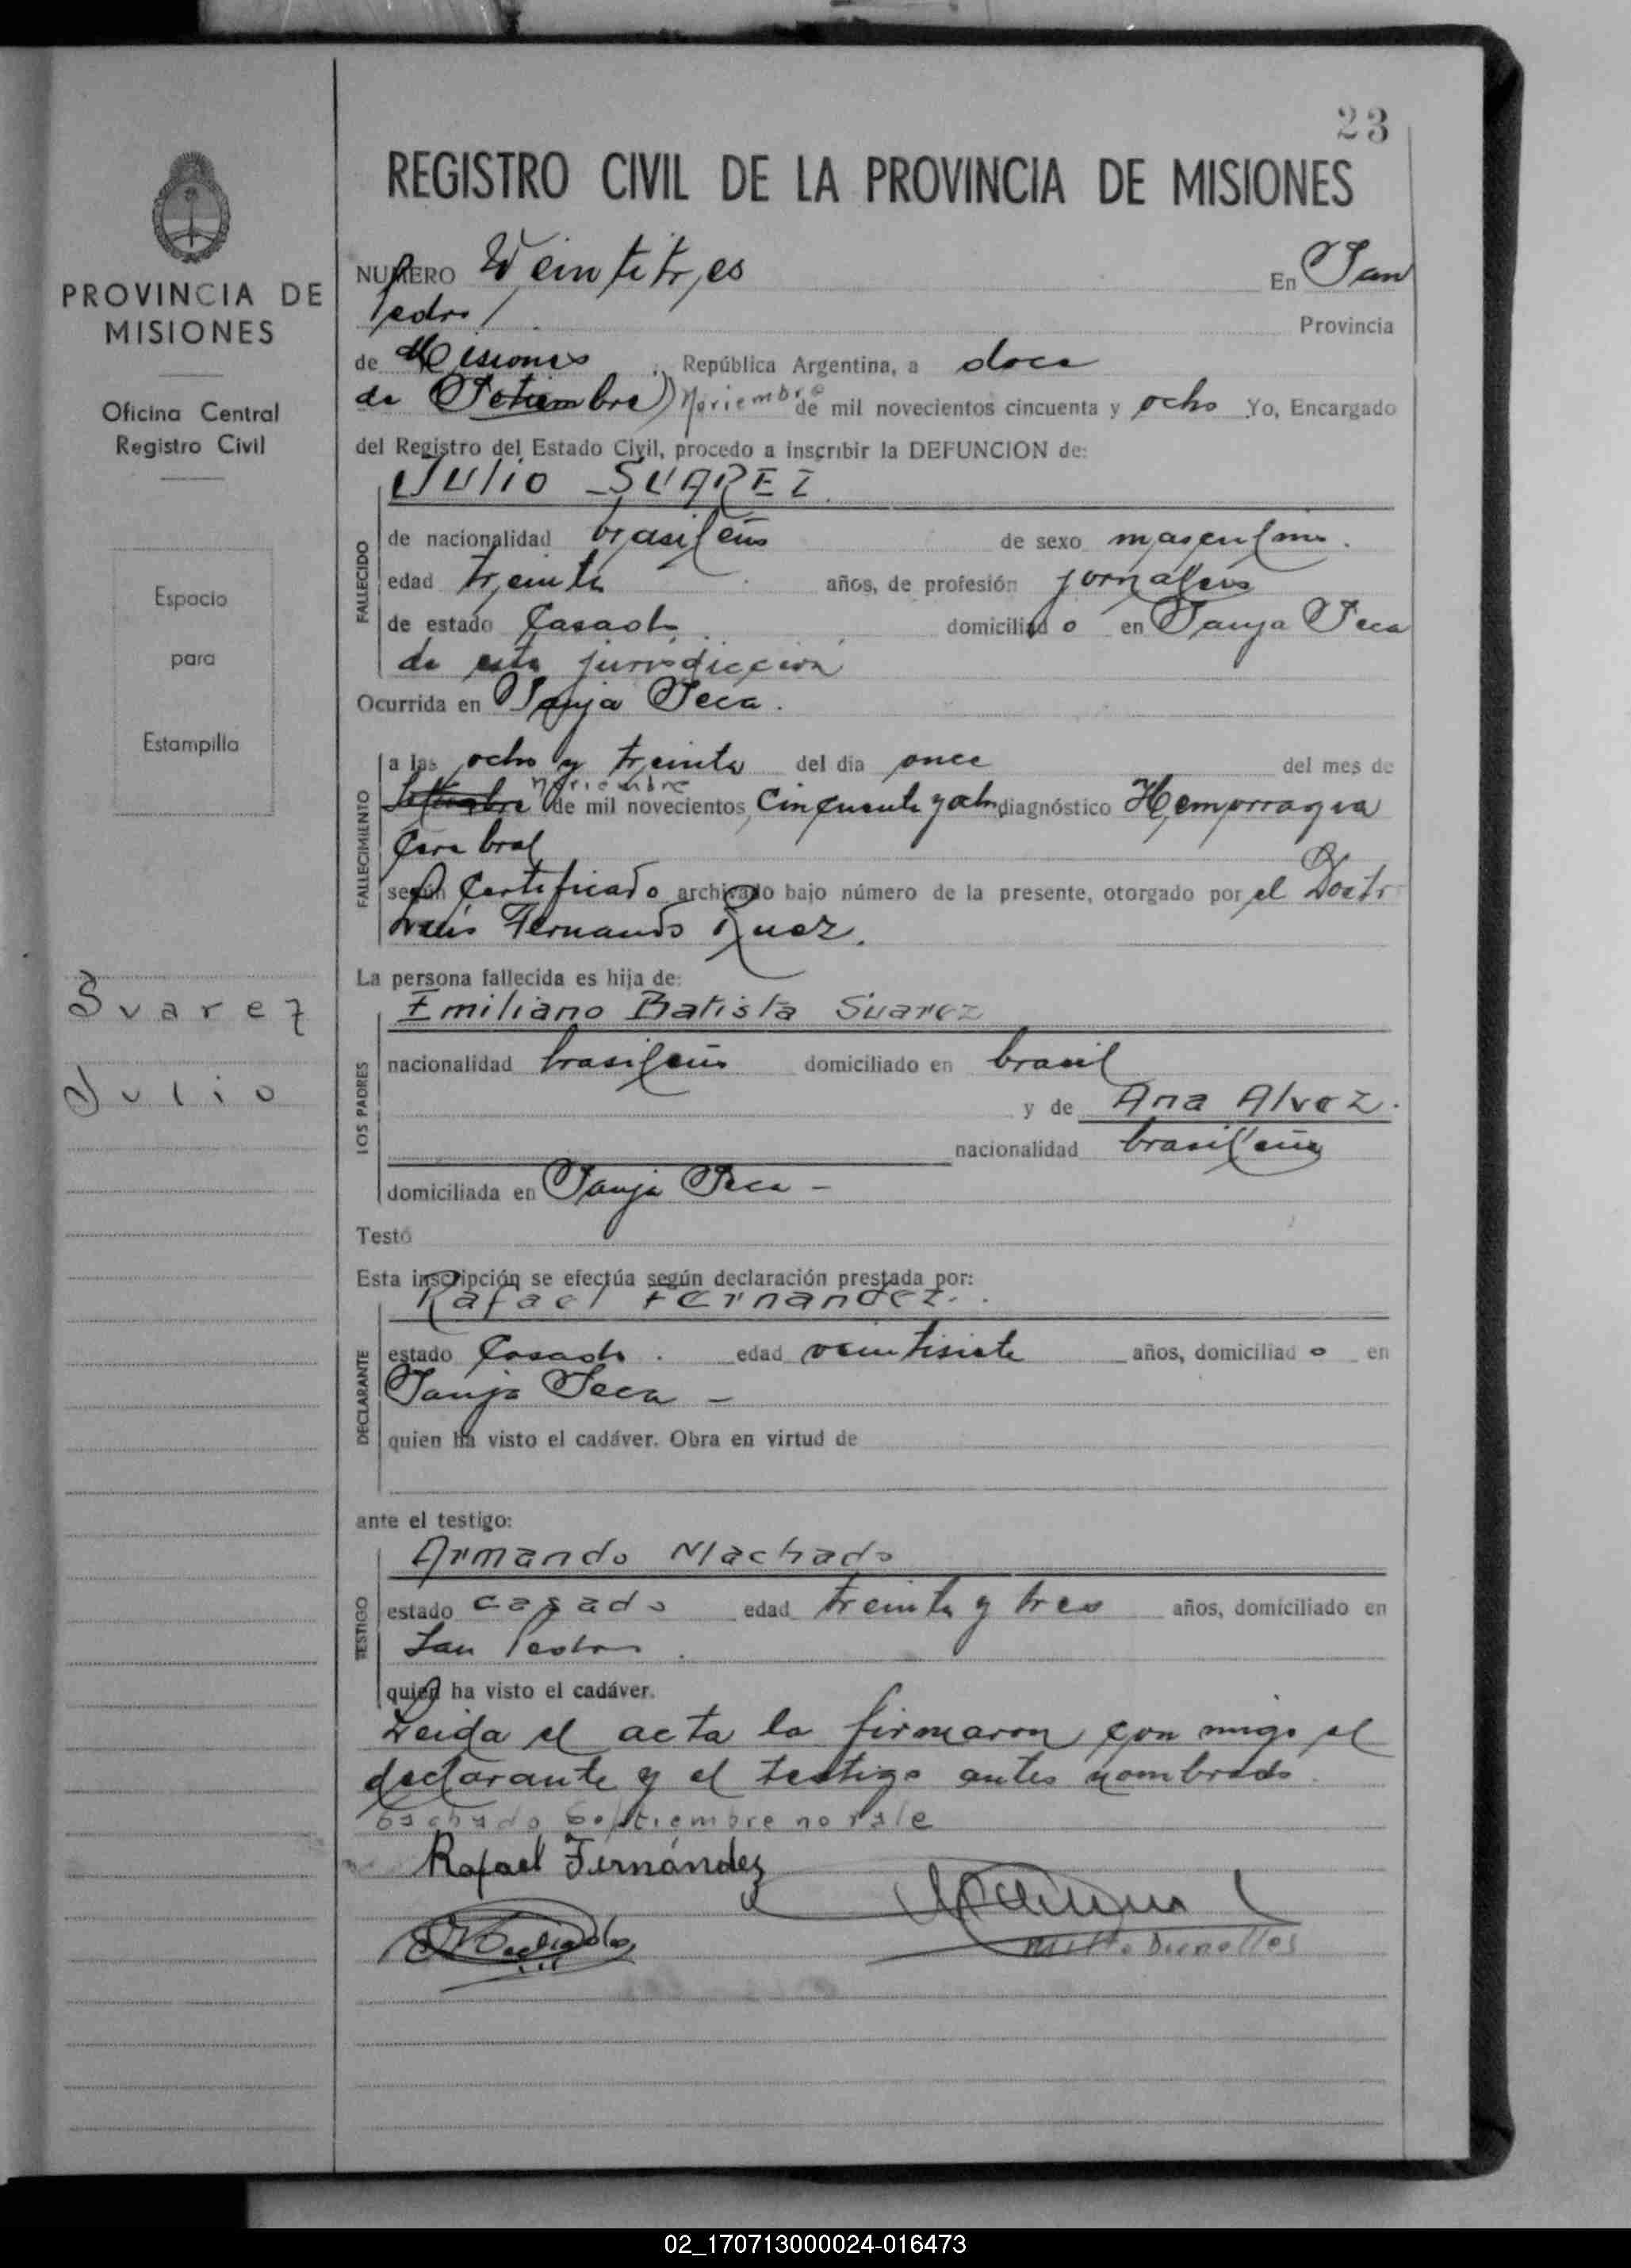 23
REGISTRO CIVIL DE LA PROVINCIA DE MISIONES
PROVINCIA DE
MISIONES
Oficina Central
Registro Civil
Espacio
para
Estampilla
Suarez
Julio
NUMERO Veintitres En San
Pedro Provincia
de Misiones, República Argentina, a doce
de Setiembre) Noviembre de mil novecientos cincuenta y ocho Yo, Encargado
del Registro del Estado Civil, procedo a inscribir la DEFUNCION de:
Julio SUAREZ.
FALLECIDO
de nacionalidad brasileño de sexo masculino.
edad treinta años, de profesión jornalero
de estado Casado domiciliado en Sanja Seca
de esta jurisdicción
Ocurrida en Sanja Seca.
FALLECIMIENTO
a las ocho y treinta del día once del mes de
Setiembre Noviembre de mil novecientos, Cincuenta y ocho diagnóstico Hemorragia
Cerebral
según Certificado archivado bajo número de la presente, otorgado por el Doctr
Luis Fernando Ruez.
La persona fallecida es hija de:
LOS PADRES
Emiliano Batista Suarez
nacionalidad brasileño domiciliado en brasil
y de Ana Alvez.
nacionalidad brasileña
domiciliada en Sanja Seca -
Testó
Esta inscripción se efectúa según declaración prestada por:
DECLARANTE
Rafael Fernandez.
estado Casado. edad veintisiete años, domiciliado en
Sanja Seca -
quien ha visto el cadáver. Obra en virtud de
ante el testigo:
TESTIGO
Armando Machado
estado casado edad treinta y tres años, domiciliado en
San Pedro.
quien ha visto el cadáver.
Leida el acta la firmaron con migo el
declarante y el testigo antes nombrado.
Septiembre no vale
Rafael Fernández
Machado
02_170713000024-016473